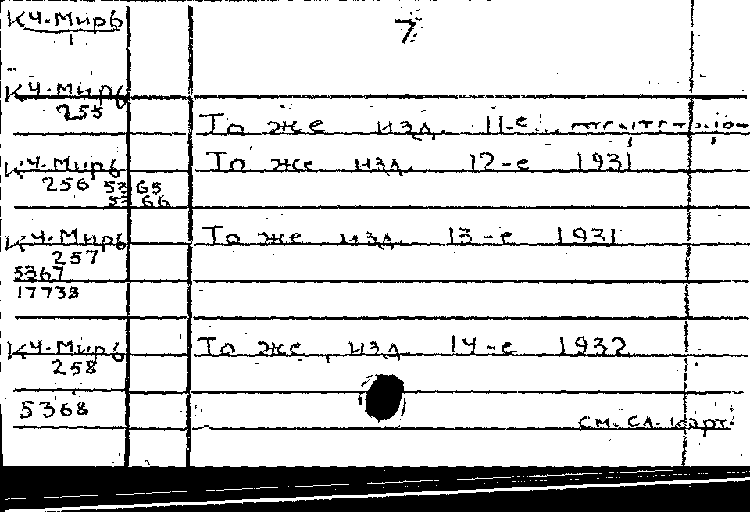 КЧ-Миръ
1
7
КЧ-Миръ
255
То же изд. 11-е
КЧ-Миръ
256
То же изд. 12-е 1931
5365
5366
КЧ-Миръ
257
То же изд. 13-е 1931
5367
17733
КЧ-Миръ
258
То же, изд. 14-е 1932
5368
см. сл. карт.